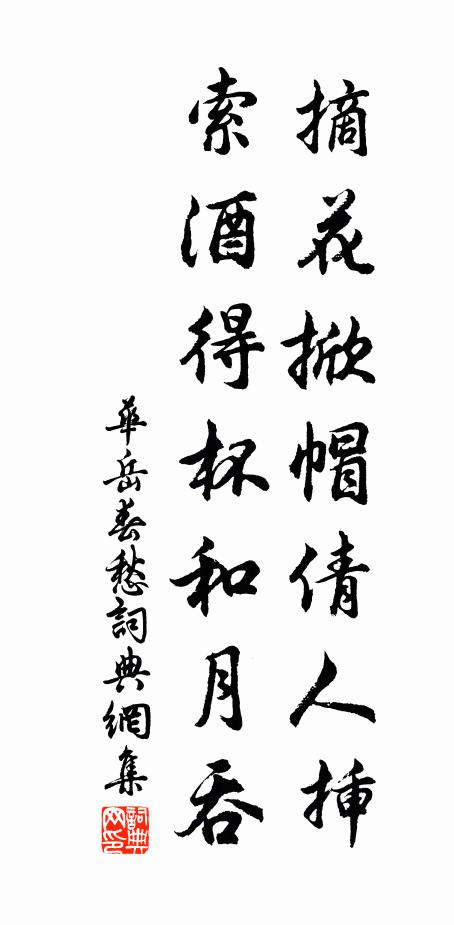 摘花掀帽倩人挿
索酒得杯和月吞
華岳春愁詞典網集
詞典網印